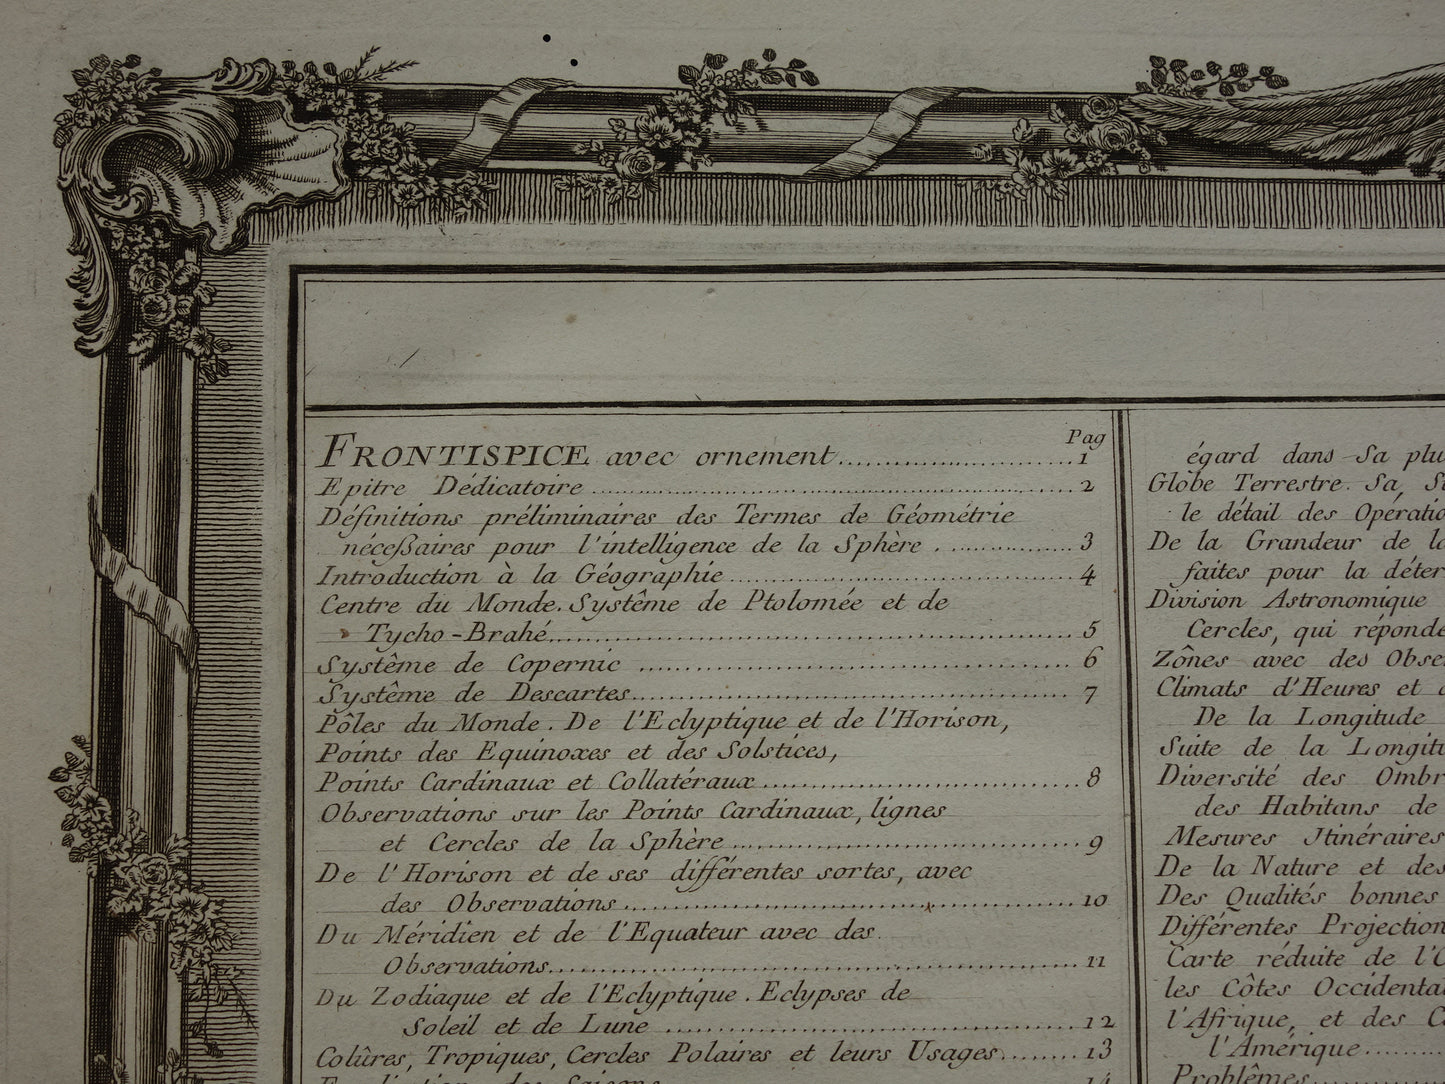 Pag
FRONTISPICE avec ornement 1
Epitre Dédicatoire 2
Définitions préliminaires des Termes de Géométrie
néceßaires pour l'intelligence de la Sphère 3
Introduction à la Géographie 4
Centre du Monde. Systême de Ptolomée et de
Tycho-Brahé 5
Systême de Copernic 6
Systême de Descartes 7
Pôles du Monde. De l'Eclyptique et de l'Horison,
Points des Equinoxes et des Solstices,
Points Cardinaux et Collatéraux 8
Observations sur les Points Cardinaux, lignes
et Cercles de la Sphère 9
De l'Horison et de ses différentes sortes, avec
des Observations 10
Du Méridien et de l'Equateur avec des
Observations 11
Du Zodiaque et de l'Eclyptique. Eclypses de
Soleil et de Lune 12
Colûres, Tropiques, Cercles Polaires et leurs Usages 13
des Saisons 14
égard dans Sa
Globe Terrestre. Sa,
le détail des
De la Grandeur de
faites pour la
Division Astronomique
Cercles, qui
Zônes avec des
Climats d'Heures et
De la Longitude
Suite de la
Diversité des
des Habitans de
Mesures Itinéraires
De la Nature et des
Des Qualités bonnes
Différentes
Carte réduite de
les Côtes
l'Afrique, et des
l'Amérique
Problêmes